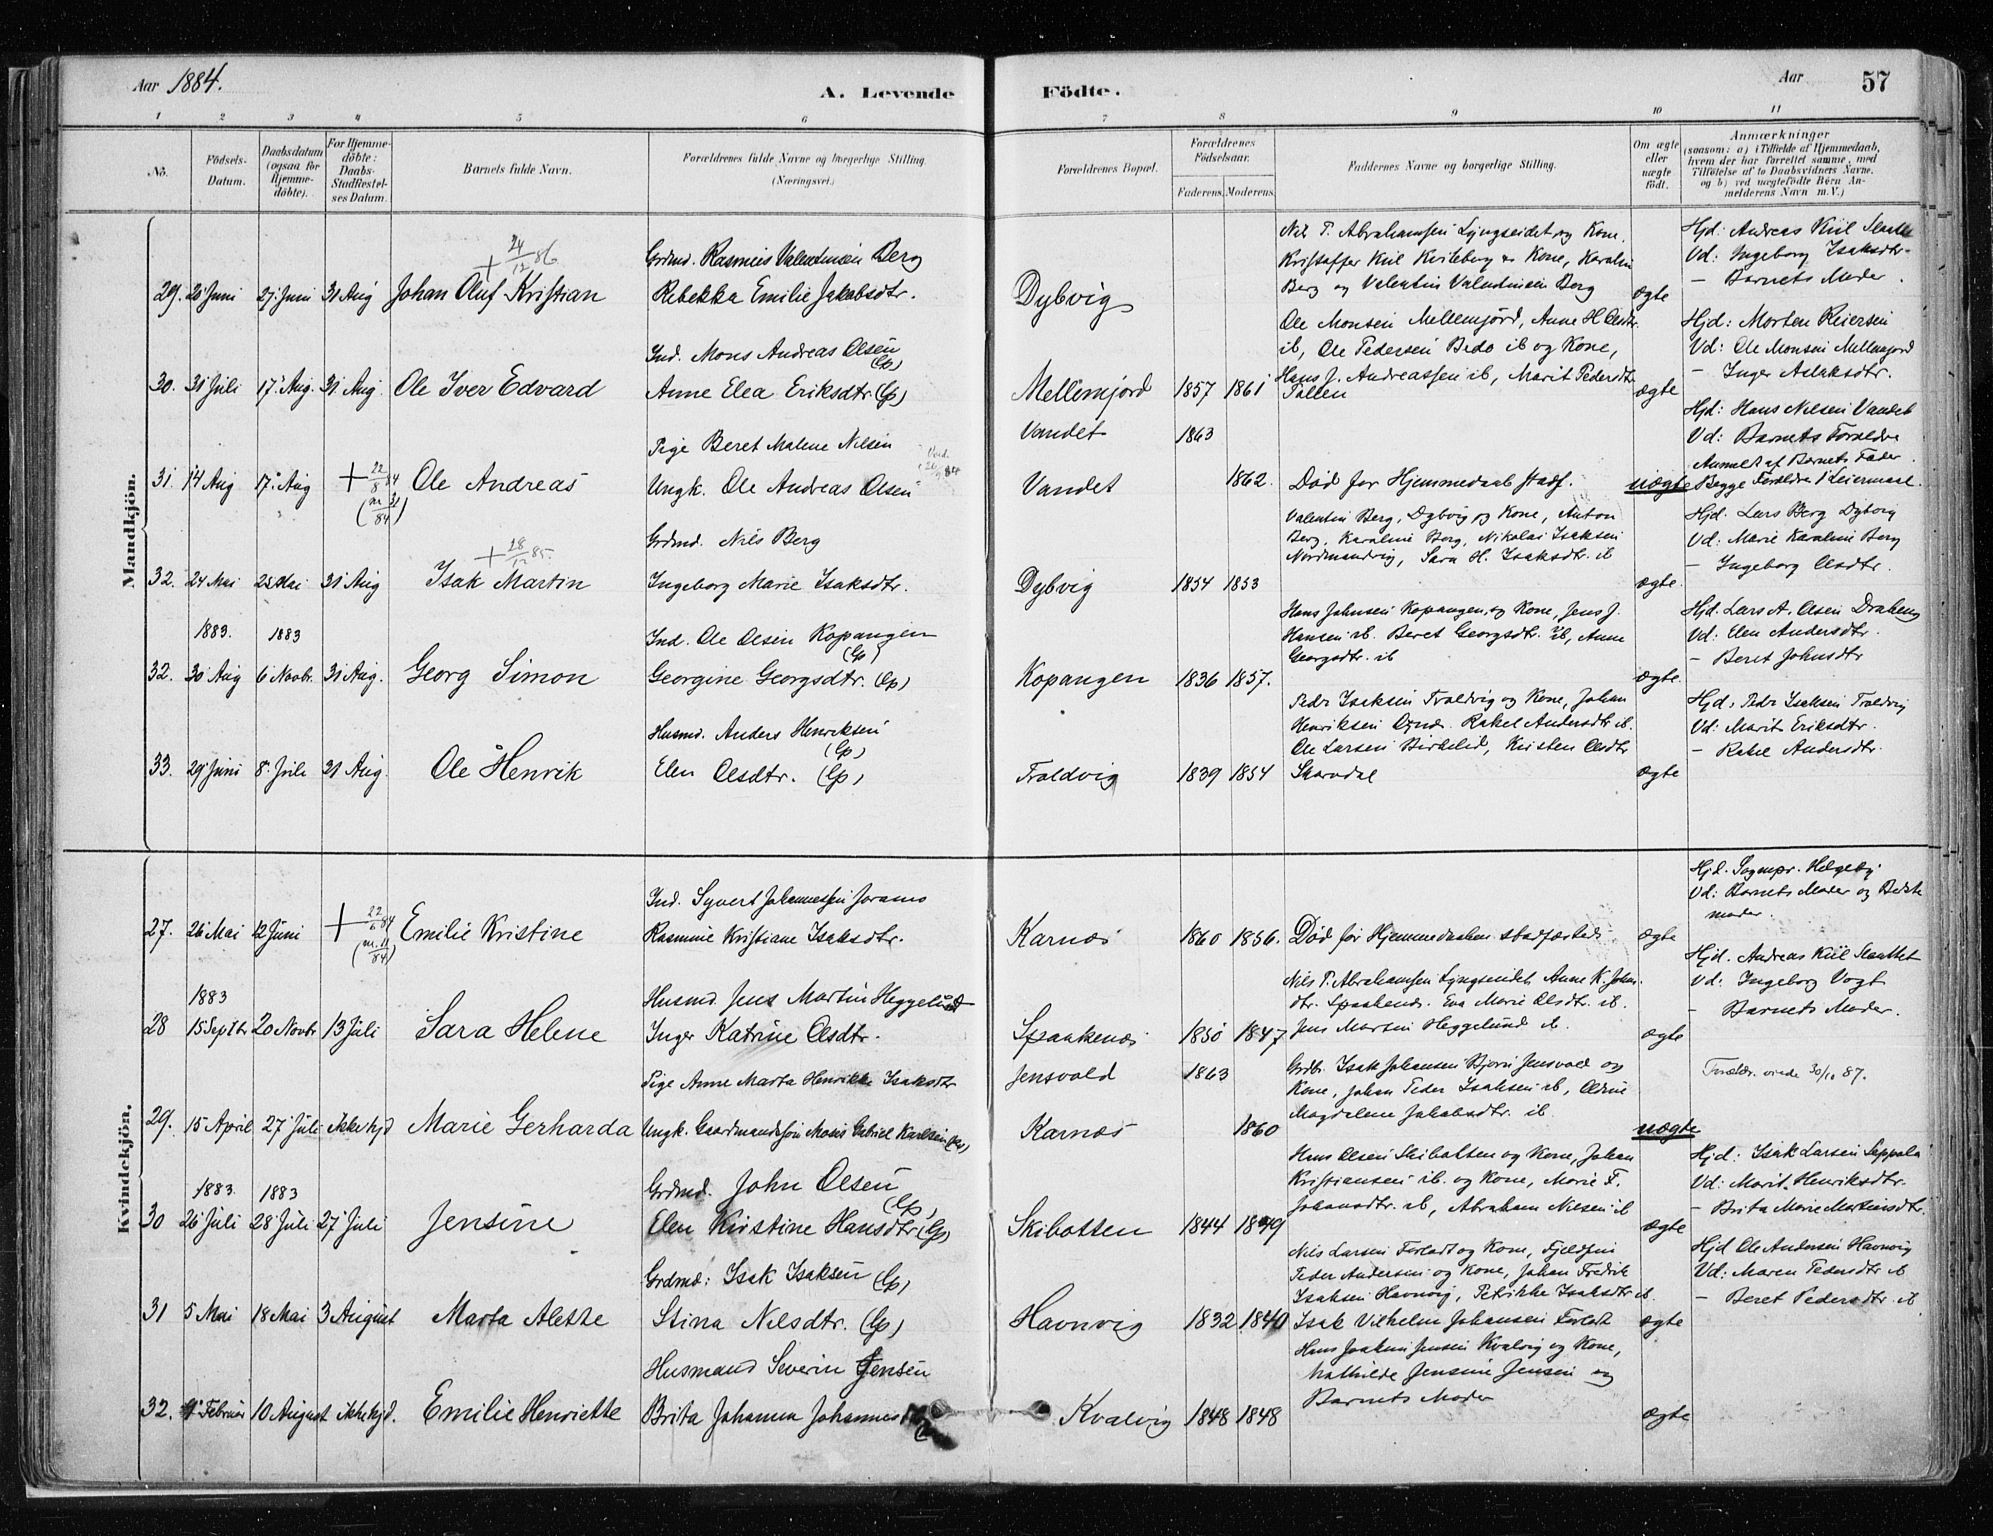 Aar 1884.
A. Levende Födte.
Aar
57
1 2 3 4 5 6 7 8 9 10 11
No.
Födsels-Datum.
Daabsdatum (ogsaa for Hjemme-döbte).
For Hjemme-döbte: Daabs-Stadfæstel-ses Datum.
Barnets fulde Navn.
Forældrenes fulde Navne og borgerlige Stilling. (Næringsvei.)
Forældrenes Bopæl.
Forældrenes Födselsaar.
Faderens. Moderens.
Faddernes Navne og borgerlige Stilling.
Om ægte eller uægte födt.
Anmærkninger (saasom: a) i Tilfælde af Hjemmedaab, hvem der har forrettet samme, med Tilföielse af to Daabsvidners Navne, og b) ved uægtefödte Börn An-melderens Navn m. V.)
Mandkjön.
+ 24/12 86
29. 20 Juni 27. Juni 31 Aug Johan Oluf Kristian
Grdmd. Rasmus Valentinsen Berg
Rebekka Emilie Jakobsdtr.
Dybvig
Nils P. Abrahamsen Lyngseidet og Kone,
Kristoffer Kiil Kvileborg og Kone, Karolin
Berg og Valentin Valentinsen Berg
ægte
Hjd: Andreas Kiil Slaatte
Vd: Ingeborg Isaksdtr.
— Barnets Moder.
30. 31 Juli 17. Aug. 31 Aug. Ole Iver Edvard
Ind. Mons Andreas Olsen (Lp)
Anne Elea Eriksdtr. (Lp)
Mellemjord 1857 1861
Ole Monsen Mellemjord, Anne H. Olsdtr.
ib, Ole Pedersen Bedo ib og Kone,
Hans J. Andreassen ib, Marit Pedersdtr.
Pollen
ægte
Hjd: Morten Reiersen
Vd: Ole Monsen Mellemjord
— Inger Aslaksdtr.
31. 14 Aug 17. Aug + 22/8 84 (nr 31/84) Ole Andreas
Pige Beret Malene Nilsen
Ungk. Ole Andreas Olsen
Vandet 1863
Vandet 1862.
Død før Hjemmedaab stadf.
uægte
Hjd: Hans Nilsen Vandet
Vd: Barnets Forældre
Anmeldt af Barnets Fader.
Begge Forældre 1 Leiermaal.
+ 28/12 85.
32. 24 Mai 25 Mai 31 Aug Isak Martin
Grdmd. Nils Berg
Ingeborg Marie Isaksdtr.
Dybvig 1854 1853
Valentin Berg, Dybvig og Kone, Anton
Berg, Karoline Berg, Nikolai Isaksen
Nordmandvig, Sara H. Isaksdtr. ib
ægte.
Hjd. Lars Berg Dybvig
Vd: Marie Karoline Berg
— Ingeborg Olsdtr.
1883. 1883
32. 30 Aug 6 Novbr. 31 Aug. Georg Simon
Ind. Ole Olsen Kopangen (Lp)
Georgine Georgsdtr. (Lp)
Kopangen 1836 1857.
Hans Johnsen Kopangen, og Kone, Jens J.
Hansen ib. Beret Georgsdtr. ib, Anne
Georgsdtr. ib
ægte.
Hjd. Lars A. Olsen
Vd: Elen Andersdtr.
— Beret Johnsdtr
33. 29 Juni 8. Juli 31 Aug. Ole Henrik
Husmd. Anders Henriksen (Lp)
Elen Olsdtr. (Lp)
Traldvig 1839 1854
Peder Isaksen Traldvig og Kone, Johan
Henriksen Rakel Andersdtr. ib.
Ole Larsen Birkelid, Kirsten Olsdtr
Skardal
ægte
Hjd: Pedr Isaksen Traldvig
Vd: Marit Eriksdtr.
— Rakel Andersdtr.
Kvindekjön.
27. 26 Mai 12 Juni + 22/6 84 (nr. 11/84) Emilie Kristine
Ind. Syvert Johannessen
Rasmine Kristiane Isaksdtr.
Karnæs 1860 1856.
Død før Hjemmedaaben stadfæstedes
ægte
Hjd. Sognepr. Helgeby
Vd: Barnets Moder og Bedste
moder.
1883
28 15 Septbr 20 Novbr. 13 Juli Sara Helene
Husmd. Jens Martin Heggelund
Inger Katrine Olsdtr.
Spaakenæs 1850 1847
Nils P. Abrahamsen Lyngseidet Anne K. Johan.
dtr. Spaakenæs. Eva Marie Olsdtr. ib.
Jens Martin Heggelund ib.
ægte
Hjd. Andreas Kiil Slaattet
Vd: Ingeborg Vogt
— Barnets Moder.
29. 15 April 27 Juli ikke hjd Marie Gerharda
Pige Anne Marta Henrikke Isaksdtr
Ungk. Gaardmandssøn Mons Gabriel Karlsen (Lp)
Jensvold 1863
Karnæs 1860
Grdbr. Isak Johansen Jensvold og
Kone, Johan Peder Isaksen ib,
Magdalene Jakobsdtr. ib
uægte
Forældr. viede 30/10 87.
1883. 1883
30 26 Juli 28 Juli 27 Juli Jensine
Grdmd. John Olsen (Lp)
Elen Kirstine Hansdtr (Lp)
Skibotten 1844 1849
Hans Olsen Skibotten og Kone, Johan
Kristiansen ib. og Kone, Marie F.
Johansdtr. ib, Abraham Nilsen ib
ægte
Hjd: Isak Larsen Seppala
Vd: Marit Henriksdtr.
— Brita Marie Mortensdtr.
31 5 Mai 18 Mai 3 August Marta Alette
Grdmd: Isak Isaksen (Lp)
Stina Nilsdtr. (Lp)
Havnvig 1832 1840
Nils Larsen Forladt og Kone, Fjeldfin
Peder Andersen og Kone, Johan Fredrik
Isaksen Havnvig, Petrikke Isaksdtr ib.
Isak Vilhelm Johansen Forladt
ægte
Hjd Ole Andersen Havnvig
Vd: Maren Pedersdtr ib
— Beret Pedersdtr ib
32. 9 Februar 10 August ikke hjd. Emilie Henriette
Husmand Severin Jensen
Brita Johanna Johannes
Kvalvig 1848 1848
Hans Joakim Jensen Kvalvig og Kone,
Mathilde Jensine Jensen og
Barnets Moder
ægte